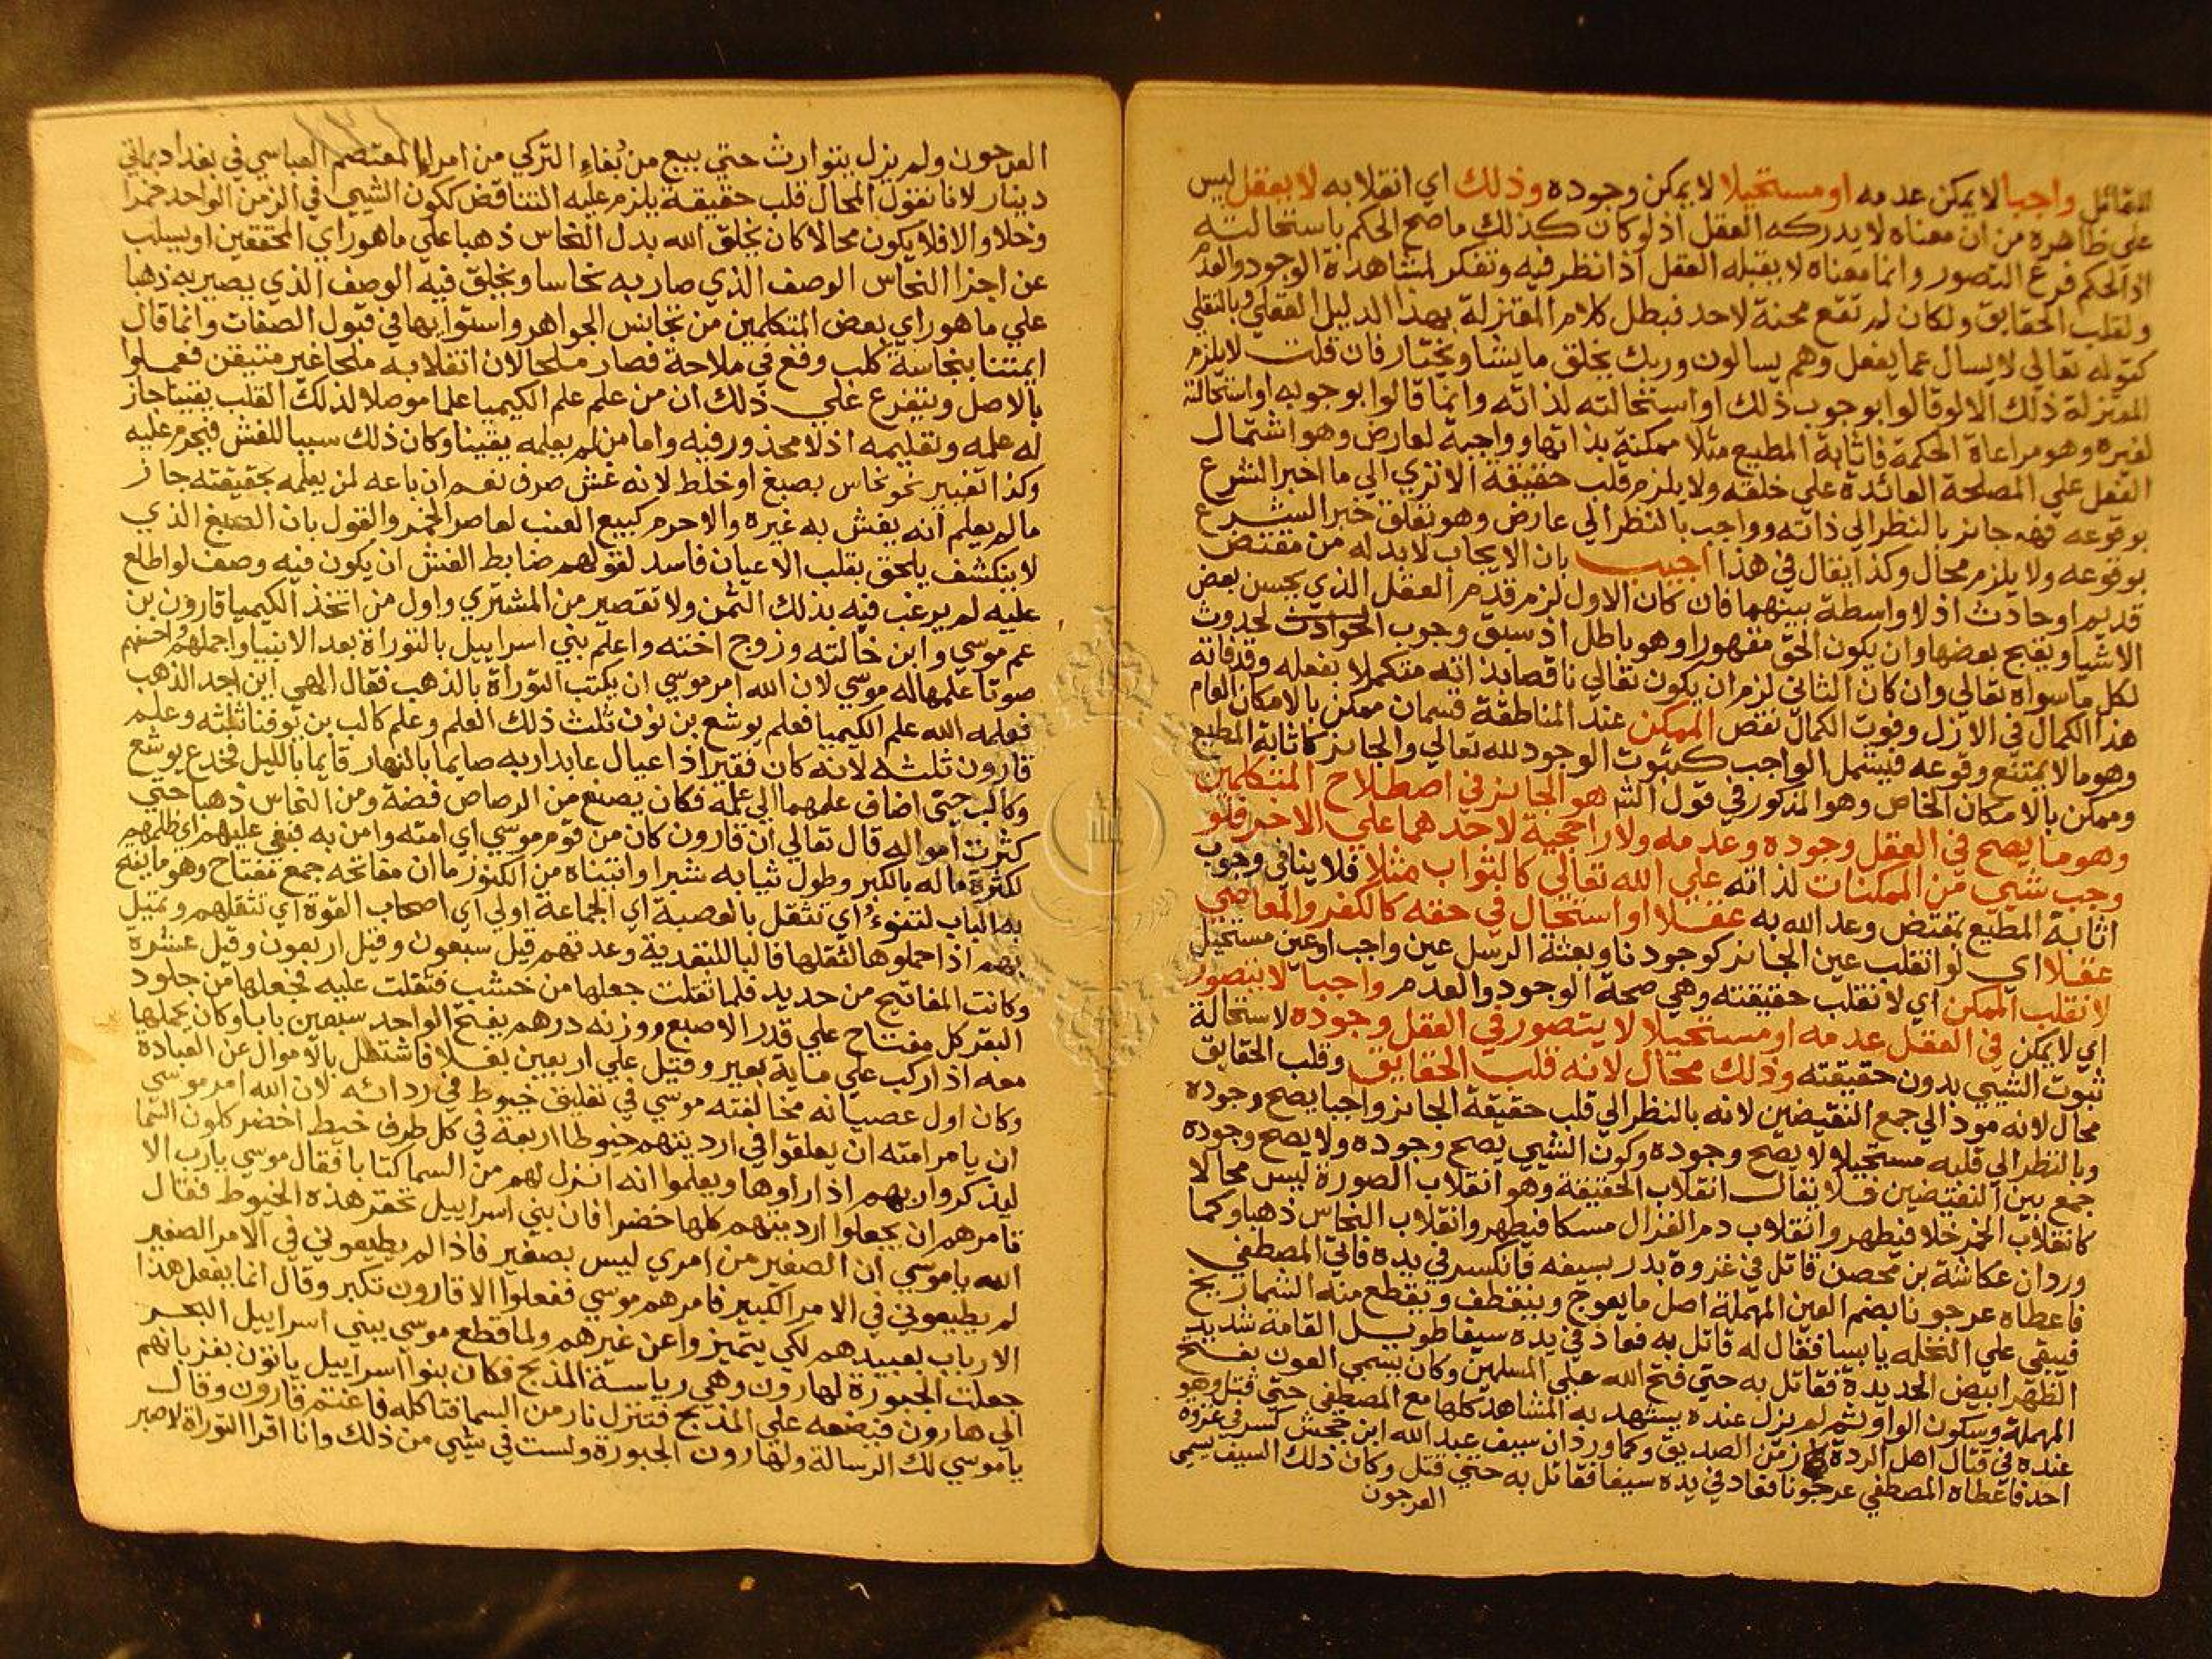 للقائل واجبا لا يمكن عدمه او مستحيلا لا يمكن وجوده وذلك اي انقلابه لا يعقل ليس
على ظاهره من ان معناه لا يدركه العقل اذ لو كان كذلك ما صح الحكم باستحالته
اذ الحكم فرع التصور وانما معناه لا يقبله العقل اذا نظر فيه وتفكر لمشاهدة الوجود والعدم
ولقلب الحقايق ولكان لم تقع محنة لاحد فبطل كلام المعتزلة بهذا الدليل العقلي وبالنقلي
كقوله تعالي لا يسال عما يفعل وهم يسالون وربك يخلق ما يشا ويختار فان قلت لا يلزم
المعتزلة ذلك الا لو قالوا بوجوب ذلك او استحالته لذاته وانما قالوا بوجوبه او استحالته
لغيره وهو مراعاة الحكمة فاثابة المطيع مثلا ممكنة بذاتها وواجبة لعارض وهو اشتمال
الفعل علي المصلحة العائدة علي خلقه ولا يلزم قلب حقيقة الا تري الي ما اخبر الشرع
بوقوعه فهو جائز بالنظر الي ذاته وواجب بالنظر الي عارض وهو تعلق خبر الشرع
بوقوعه ولا يلزم محال وكذا يقال في هذا اجيب بان الايجاب لا بد له من مقتض
قديم او حادث اذ لا واسطة بينهما فان كان الاول لزم قدم العقل الذي يحسن بعض
الاشيا ويقبح بعضها وان يكون الحق مقهورا وهو باطل اذ سبق وجوب الحوادث لحدوث
لكل ما سواه تعالي وان كان الثاني لزم ان يكون تعالي ناقصا بذاته متكملا بفعله وقد فاته
هذا الكمال في الازل وفوت الكمال نقص الممكن عند المناطقة قسمان ممكن بالامكان العام
وهو ما لا يمتنع وقوعه فيشمل الواجب كثبوت الوجود لله تعالي والجائز كاثابة المطيع
وممكن بالامكان الخاص وهو المذكور في قول الش هو الجائز في اصطلاح المتكلمين
وهو ما يصح في العقل وجوده وعدمه ولا راجحية لاحدهما علي الاخر فلو
وجب شيي من الممكنات لذاته علي الله تعالي كالثواب مثلا فلا ينافي وجوب
اثابة المطيع بمقتض وعد الله به عقلا او استحال في حقه كالكفر والمعاصي
عقلا اي لو انقلب عين الجائز كوجودنا وبعثة الرسل عين واجب او عين مستحيل
لانقلب الممكن اي لانقلب حقيقته وهي صحة الوجود والعدم واجبا لا يتصور
اي لا يمكن في العقل عدمه او مستحيلا لا يتصور في العقل وجوده لاستحالة
ثبوت الشيي بدون حقيقته وذلك محال لانه قلب الحقايق وقلب الحقايق
محال لانه مود الي جمع النقيضين لانه بالنظر الي قلب حقيقة الجائز واجبا يصح وجوده
وبالنظر الي قلبه مستحيلا لا يصح وجوده وكون الشيي يصح وجوده ولا يصح وجوده
جمع بين النقيضين فلا يقال انقلاب الحقيقة وهو انقلاب الصورة ليس محالا
كانقلاب الخمر خلا فيطهر وانقلاب دم الغزال مسكا فيطهر وانقلاب النحاس ذهبا وكما
ورد ان عكاشة بن محصن قاتل في غزوة بدر بسيفه فانكسر في يده فاتي المصطفي
فاعطاه عرجونا بضم العين المهملة اصل ما يعوج وينعطف ويقطع منه الشماريخ
فيبقي علي النخله يابسا فقال له قاتل به فعاد في يده سيفا طويل القامة شديد
الظهر ابيض الحديدة فقاتل به حتي فتح الله علي المسلمين وكان يسمي العون بفتح
المهملة وسكون الواو ثم لم يزل عنده يشهد به المشاهد كلها مع المصطفي حتي قتل وهو
عنده في قتال اهل الردة زمن الصديق وكما ورد ان سيف عبد الله ابن جحش كسر في غزوة
احد فاعطاه المصطفي عرجونا فعاد في يده سيفا فقاتل به حتي قتل وكان ذلك السيف يسمي
العرجون
العرجون ولم يزل يتوارث حتي بيع من بُغاءِ التركي من امراء المعتصم العباسي في بغداد بماتي
دينار لانا نقول المحال قلب حقيقة يلزم عليه التناقض ككون الشيي في الزمن الواحد خمرا
وخلا والا فلا يكون محالا كان يخلق الله بدل النحاس ذهبا علي ما هو راي المحققين او يسلب
عن اجزا النحاس الوصف الذي صار به نحاسا ويخلق فيه الوصف الذي يصير به ذهبا
علي ما هو راي بعض المتكلمين من تجانس الجواهر واستوايها في قبول الصفات وانما قال
ايمتنا بنجاسة كلب وقع في ملاحة فصار ملحا لان انقلابه ملحا غير متيقن فعملوا
بالاصل ويتفرع علي ذلك ان من علم علم الكيميا علما موصلا لذلك القلب يقينا جاز
له علمه وتعليمه اذ لا محذور فيه واما من لم يعلمه يقينا وكان ذلك سببا للغش فيحرم عليه
وكذا تغيير نحو نحاس بصبغ او خلط لانه غش صرف نعم ان باعه لمن يعلمه بحقيقته جاز
ما لم يعلم انه يغش به غيره والا حرم كبيع العنب لعاصر الخمر والقول بان الصبغ الذي
لا ينكشف يلحق بقلب الاعيان فاسد لقولهم ضابط الغش ان يكون فيه وصف لو اطلع
عليه لم يرغب فيه بذلك الثمن ولا تقصير من المشتري واول من اتخذ الكيميا قارون بن
عم موسي وابن خالته وزوج اخته واعلم بني اسراييل بالتوراة بعد الانبيا واجملهم احسنهم
صوتا علمها له موسي لان الله امر موسي ان يكتب التوراة بالذهب فقال الهي اين اجد الذهب
فعلمه الله علم الكيميا فعلم يوشع بن نون ثلث ذلك العلم وعلم كالب بن يوفنا ثلثه وعلم
قارون ثلثه لانه كان فقيرا ذا عيال عابدا ربه صايما بالنهار قايما بالليل فخدع يوشع
وكالب حتي اضاف علمهما الي علمه فكان يصنع من الرصاص فضة ومن النحاس ذهبا حتي
كثرت امواله قال تعالي ان قارون كان من قوم موسي اي امته وامن به فبغي عليهم اي ظلمهم
لكثرة ماله بالكبر وطول ثيابه شبرا واتيناه من الكنوز ما ان مفاتحه جمع مفتاح وهو ما يفتح
به الباب لتنوءُ اي تثقل بالعصبة اي الجماعة اولي اي اصحاب القوة اي تثقلهم وتميل
بهم اذا حملوها لثقلها فالبا للتعدية وعدتهم قيل سبعون وقيل اربعون وقيل عشرة
وكانت المفاتيح من حديد فلما ثقلت جعلها من خشب فثقلت عليه فجعلها من جلود
البقر كل مفتاح علي قدر الاصبع ووزنه درهم يفتح الواحد سبعين بابا وكان يحملها
معه اذا ركب علي ماية بعير وقيل علي اربعين بغلا فاشتغل بالاموال عن العبادة
وكان اول عصيانه مخالفته موسي في تعليق خيوط في ردائه لان الله امر موسي
ان يامر امته ان يعلقوا في ارديتهم خيوطا اربعة في كل طرف خيط اخضر كلون السما
ليذكروا ربهم اذا راوها ويعلموا انه انزل لهم من السما كتابا فقال موسي يارب الا
تامرهم ان يجعلوا ارديتهم كلها خضرا فان بني اسراييل تحقر هذه الخيوط فقال
الله يا موسي ان الصغير من امري ليس بصغير فاذا لم يطيعوني في الامر الصغير
لم يطيعوني في الامر الكبير فامرهم موسي ففعلوا الا قارون تكبر وقال انما يفعل هذا
الارباب لعبيدهم لكي يتميزوا عن غيرهم ولما قطع موسي ببني اسراييل البحر
جعلت الحبورة لهارون وهي رياسة المذبح فكان بنوا اسراييل ياتون بقربانهم
الي هارون فيضعه علي المذبح فتنزل نار من السما فتاكله فاغتم قارون وقال
يا موسي لك الرسالة ولهارون الحبورة ولست في شيي من ذلك وانا اقرا التوراة لا صبر